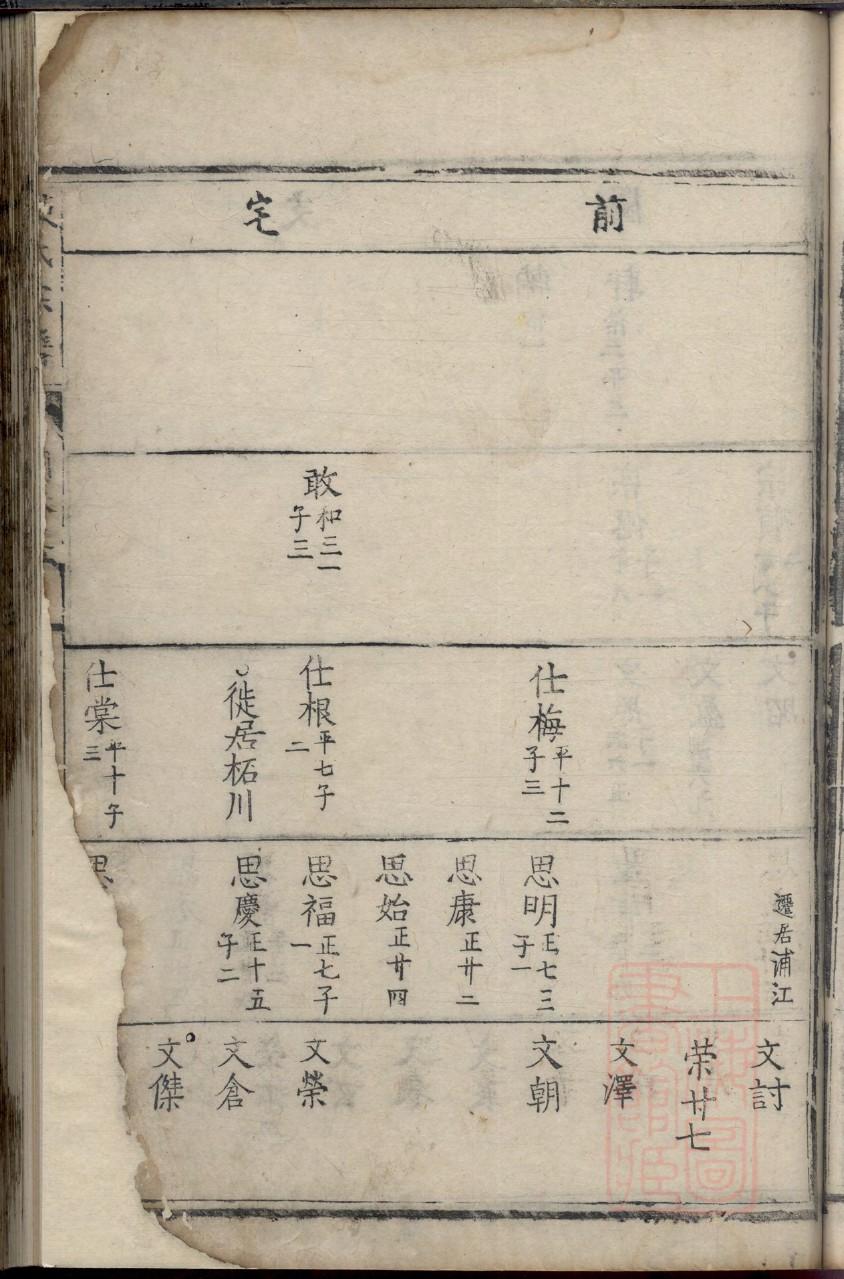 前宅
敢 和三一
子三
仕梅 平十二
子三
仕根 平七子
二
徙居柘川
仕棠 平十子
三
遷居浦江
思明 正七三
子一
思康 正廿二
思始 正廿四
思福 正七子
一
思慶 正十五
子二
思
文討
荣廿七
文澤
文朝
文榮
文倉
文傑